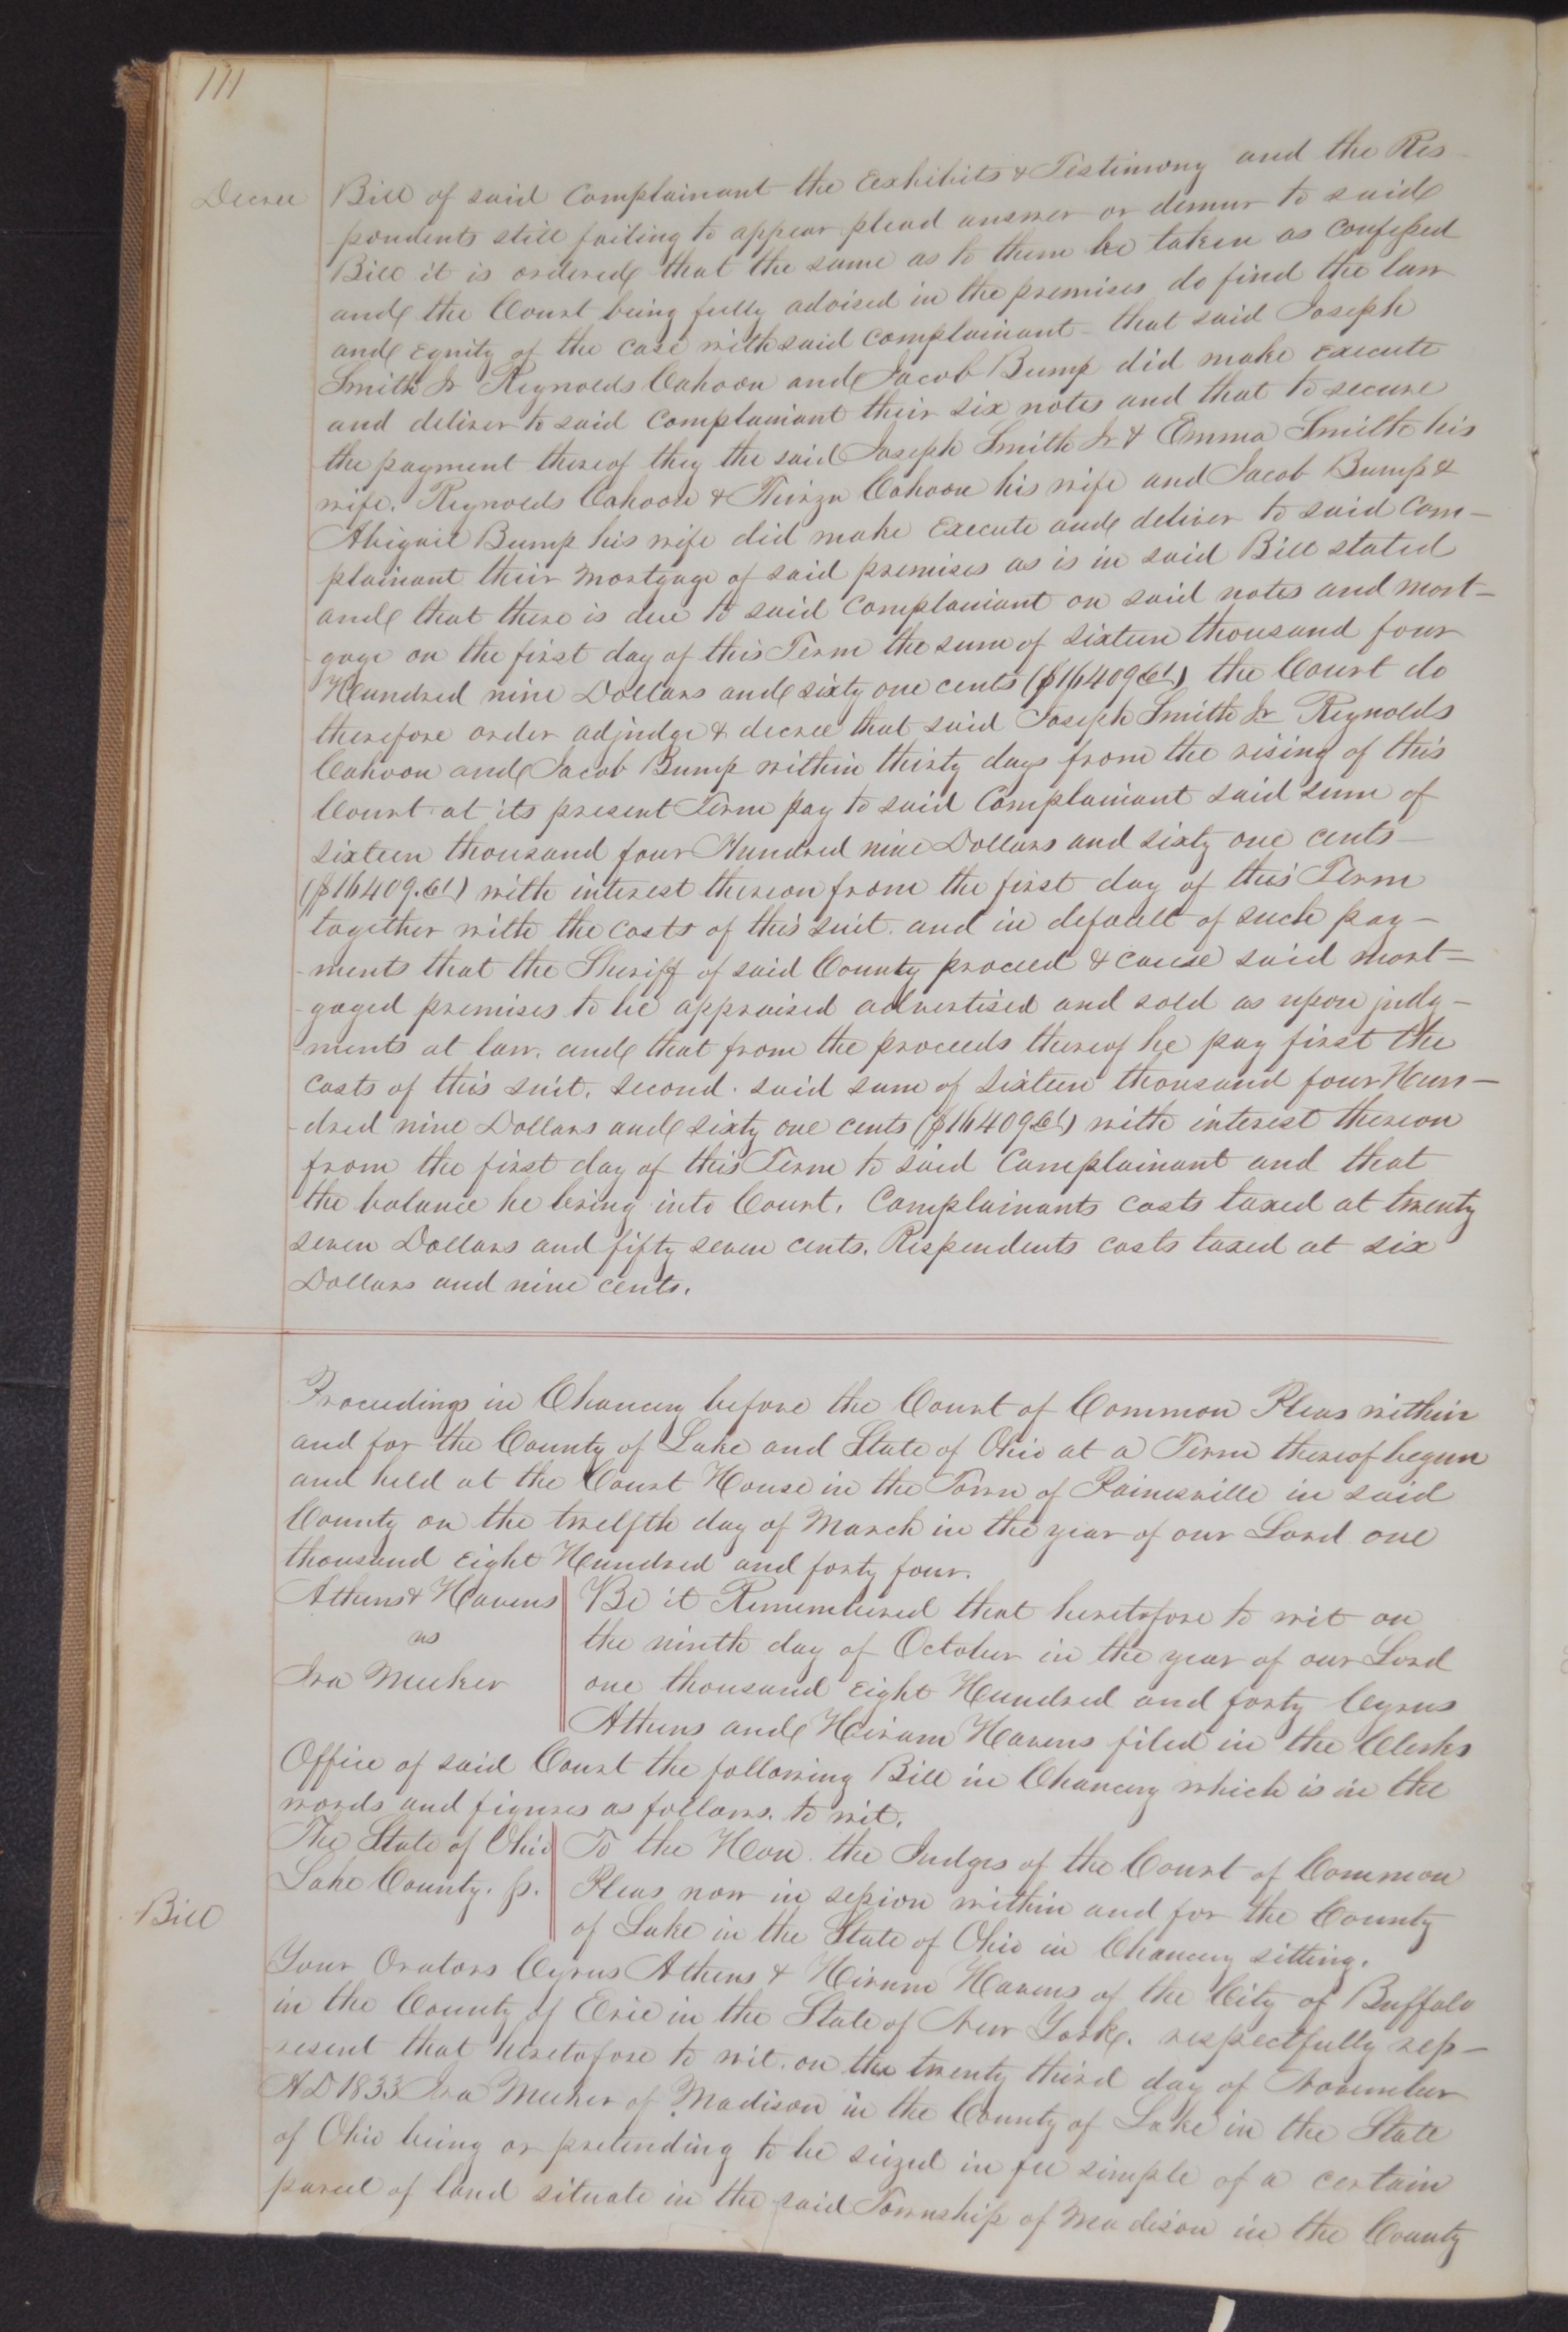 111
Decree Bill of said Complainant the Exhibits & Testimony and the Res
pondents still failing to appear plead answer or demur to said
Bill it is ordered that the same as to them be taken as confessed
and the Court being fully advised in the premises do find the law
and Equity of the case with said complainant - that said Joseph
Smith Jr Reynolds Cahoon and Jacob Bump did make Execute
and deliver to said Complainant their six notes and that to secure
the payment thereof they the said Joseph Smith Jr & Emma Smith his
wife. Reynolds Cahoon & Thirza Cahoon his wife and Jacob Bump &
Abigail Bump his wife did make Execute and deliver to said Com-
plainant their Mortgage of said premises as is in said Bill stated
and that there is due to said Complainant on said notes and mort-
-gage on the first day of this Term the sum of sixteen thousand four
Hundred nine Dollars and sixty one cents ($16409.61) the Court do
therefore order adjudge & decree that said Joseph Smith Jr Reynolds
Cahoon and Jacob Bump within thirty days from the rising of this
Court at its present Term pay to said Complainant said sum of
sixteen thousand four Hundred nine Dollars and sixty one cents -
($16409.61) with interest thereon from the first day of this Term
together with the costs of this suit. and in default of such pay-
-ments that the Sheriff of said County proceed & cause said mort-
-gaged premises to be appraised advertised and sold as upon judg-
-ments at law. and that from the proceeds thereof he pay first the
costs of this suit. second. said sum of sixteen thousand four Hun-
-dred nine Dollars and sixty one cents ($16409.61) with interest thereon
from the first day of this Term to said Complainant and that
the balance he bring into Court. Complainants costs taxed at twenty
seven Dollars and fifty seven cents. Respondents costs taxed at six
Dollars and nine cents.
Proceedings in Chancery before the Court of Common Pleas within
and for the County of Lake and State of Ohio at a Term thereof begun
and held at the Court House in the Town of Painesville in said
County on the twelfth day of March in the year of our Lord one
thousand Eight Hundred and forty four.
Athens & Havens Be it Remembered that heretofore to wit on
vs the ninth day of October in the year of our Lord
Ira Meeker one thousand Eight Hundred and forty Cyrus
Athens and Hiram Havens filed in the Clerks
Office of said Court the following Bill in Chancery which is in the
words and figures as follows. to wit.
The State of Ohio To the Hon. the Judges of the Court of Common
Lake County. ss. Pleas now in session within and for the County
Bill of Lake in the State of Ohio in Chancery sitting.
Your Orators Cyrus Athens & Hiram Havens of the City of Buffalo
in the County of Erie in the State of New York. respectfully rep-
resent that heretofore to wit. on the twenty third day of November
AD 1833 Ira Meeker of Madison in the County of Lake in the State
of Ohio being or pretending to be seized in fee simple of a certain
parcel of land situate in the said Township of Madison in the County